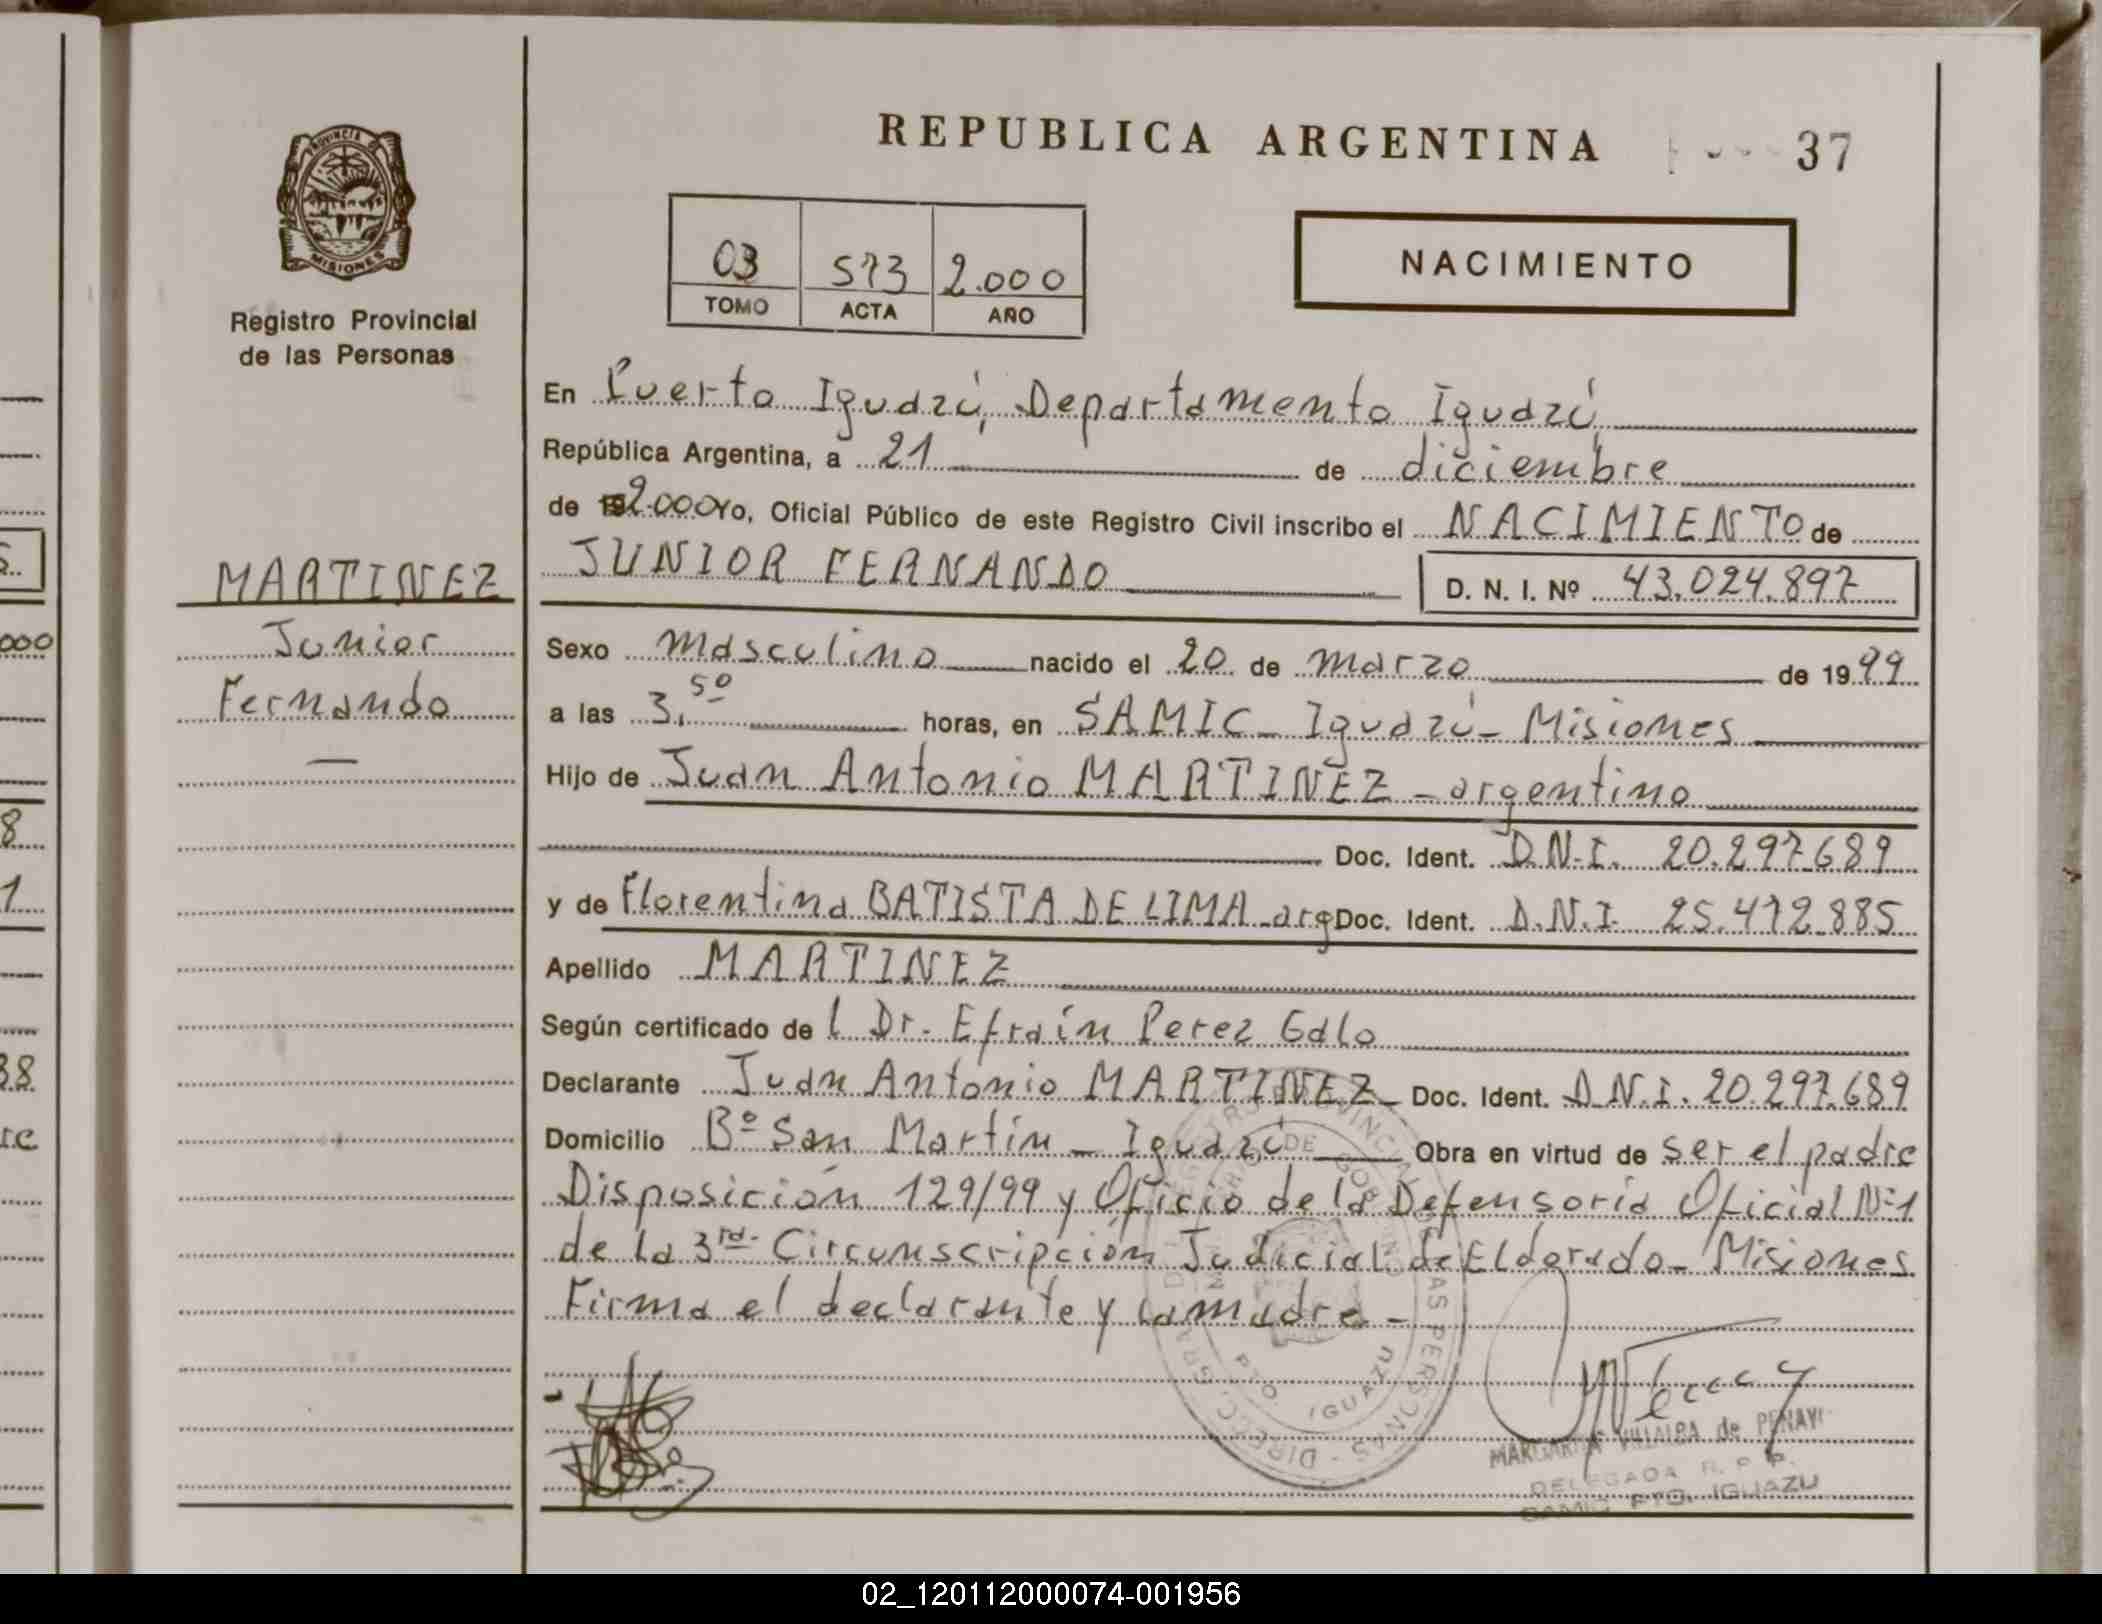 REPUBLICA ARGENTINA
37
PROVINCIA
MISIONES
Registro Provincial
de las Personas
03 573 2.000
TOMO ACTA AÑO
NACIMIENTO
En Puerto Iguazú, Departamento Iguazú
República Argentina, a 21 de diciembre
de 2.000 Yo, Oficial Público de este Registro Civil inscribo el NACIMIENTO de
JUNIOR FERNANDO D. N. I. Nº 43.024.897
MARTINEZ
Junior
Fernando
Sexo masculino nacido el 20 de marzo de 1999
a las 3,50 horas, en SAMIC - Iguazú - Misiones
Hijo de Juan Antonio MARTINEZ - argentino
Doc. Ident. D.N.I. 20.297.689
y de Florentina BATISTA DE LIMA - arg Doc. Ident. D.N.I. 25.472.885
Apellido MARTINEZ
Según certificado de l Dr. Efraín Perez Galo
Declarante Juan Antonio MARTINEZ - Doc. Ident. D.N.I. 20.297.689
Domicilio Bº San Martín - Iguazú Obra en virtud de ser el padre
Disposición 129/99 y Oficio de la Defensoria Oficial Nº1
de la 3ra. Circunscripción Judicial de Eldorado - Misiones
Firma el declarante y la madre -
PTO. IGUAZU
MARGARITA VILLALBA de PENAY
DELEGADA R. P. P.
SAMIC PTO. IGUAZU
000
8
1
38
re
02_120112000074-001956